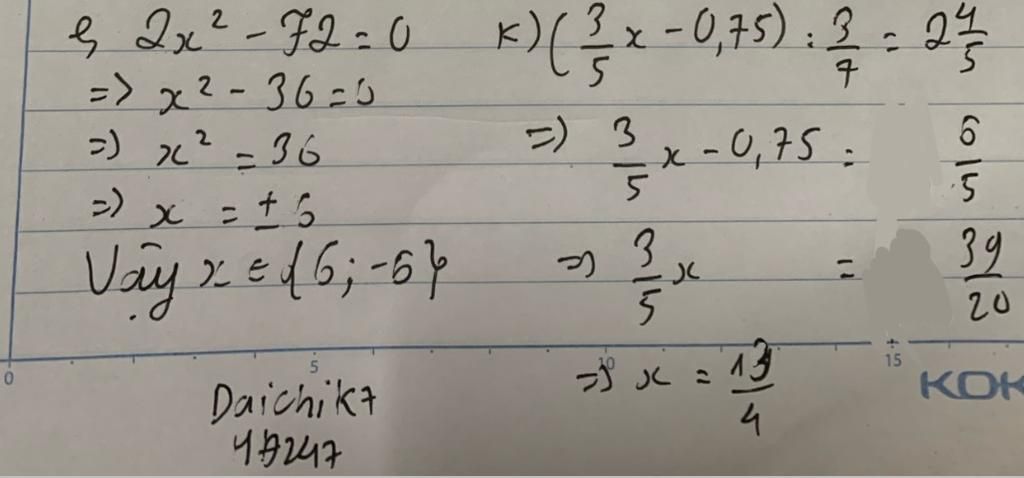 e, 2x² - 72 = 0
=> x² - 36 = 0
=> x² = 36
=> x = ± 6
Vậy x ∈ {6; -6}
K) (3/5 x - 0,75) : 3/7 = 2 4/5
=> 3/5 x - 0,75 = 6/5
=> 3/5 x = 39/20
=> x = 13/4
0 5 10 15
KOK
Daichik7